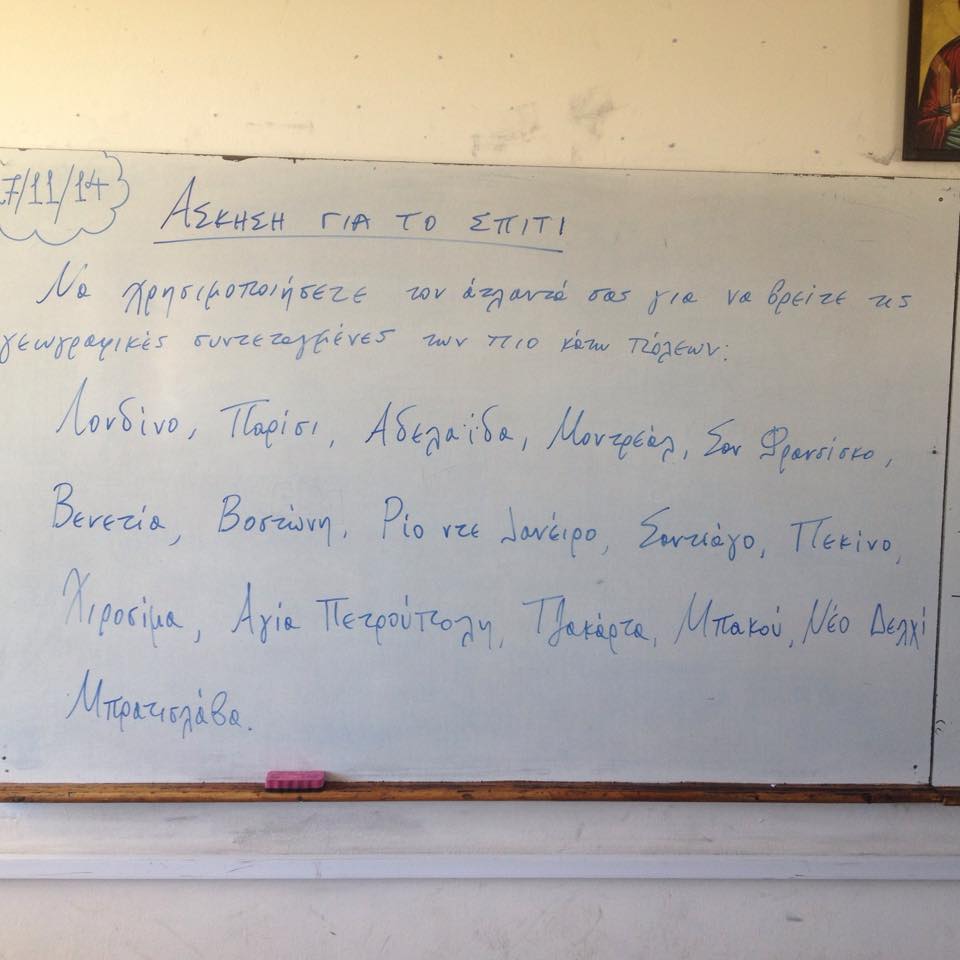 7/11/14
ΑΣΚΗΣΗ ΓΙΑ ΤΟ ΣΠΙΤΙ
Να χρησιμοποιήσετε τον άτλαντά σας για να βρείτε τις
γεωγραφικές συντεταγμένες των πιο κάτω πόλεων:
Λονδίνο, Παρίσι, Αδελαΐδα, Μοντρεάλ, Σαν Φρανσίσκο,
Βενετία, Βοστώνη, Ρίο ντε Ιανέιρο, Σαντιάγο, Πεκίνο,
Χιροσίμα, Αγία Πετρούπολη, Τζακάρτα, Μπακού, Νέο Δελχί
Μπρατισλάβα.